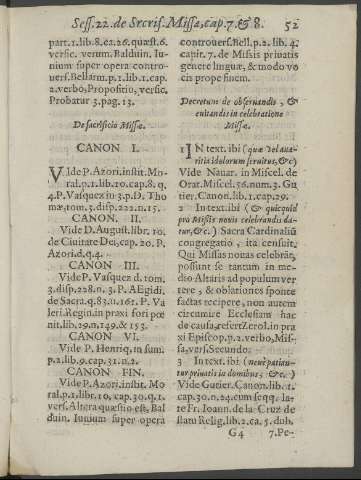 Sess. 22. de Sacris. Missæ, cap. 7. & 8. 52
part. 1. lib. 8. ca. 26. quæst. 6.
versic. verum. Balduin. Iu-
nium super opera contro-
uers. Bellarm. p. 1. lib. 1. cap.
2. verbo, Propositio, versic.
Probatur 3. pag. 13.
De sacrificio Missæ.
CANON I.
VIde P. Azori. instit. Mo-
ral. p. 1. lib. 10. cap. 8. q.
4. P. Vasquez in 3. p. D. Tho
mæ, tom. 3. disp. 222. n. 15.
CANON. II.
Vide D. August. libr. 10.
de Ciuitate Dei, cap. 20. P.
Azori. d. q. 4.
CANON III.
Vide P. Vasquez d. tom.
3. disp. 228. n. 3. P. AEgidi.
de Sacra. q. 83. n. 161. P. Va
leri. Regin. in praxi fori pœ
nit. lib. 29. n. 149. & 153.
CANON VI.
Vide P. Henriq. in sum.
p. 2. lib. 9. cap. 31. n. 2.
CANON FIN.
Vide P. Azori. instit. Mo
ral. p. 1. libr. 10. cap. 30. q. 1.
vers. Altera quæstio est, Bal
duin. Iunium super opera
controuers. Bell. p. 2. lib. 4.
capit. 7. de Missis priuatis
gentte linguæ, & modo vo
cis prope finem.
Decretum de obseruandis, &
euitandis in celebratione
Missæ.
1 IN text. ibi (quæ vel aua-
ritia idolorum seruitus, &c)
Vide Nauar. in Miscel. de
Orat. Miscel. 36. num. 3. Gu
tier. Canon. lib. 1. cap. 29.
2 In text. ibi (& quicquid
pro Missis nouis celebrandis da-
tur, &c.) Sacra Cardinaliũ
congregatio, ita censuit.
Qui Missas nouas celebrãt,
possunt se tantum in me-
dio Altaris ad populum ver
tere, & oblationes sponte
factas recipere, non autem
circumire Ecclesiam hac
de causa, refert Zerol. in pra
xi Episcop. p. 2. verbo, Mis-
sa, vers. Secundo.
3 In text. ibi (neue patian-
tur priuatis in domibus, &c.)
Vide Gutier. Canon. lib. 1.
cap. 30. n. 24. cum seqq. la-
te Fr. Ioann. de la Cruz de
statu Relig. lib. 2. ca. 5. dub.
G4 7. Pe-